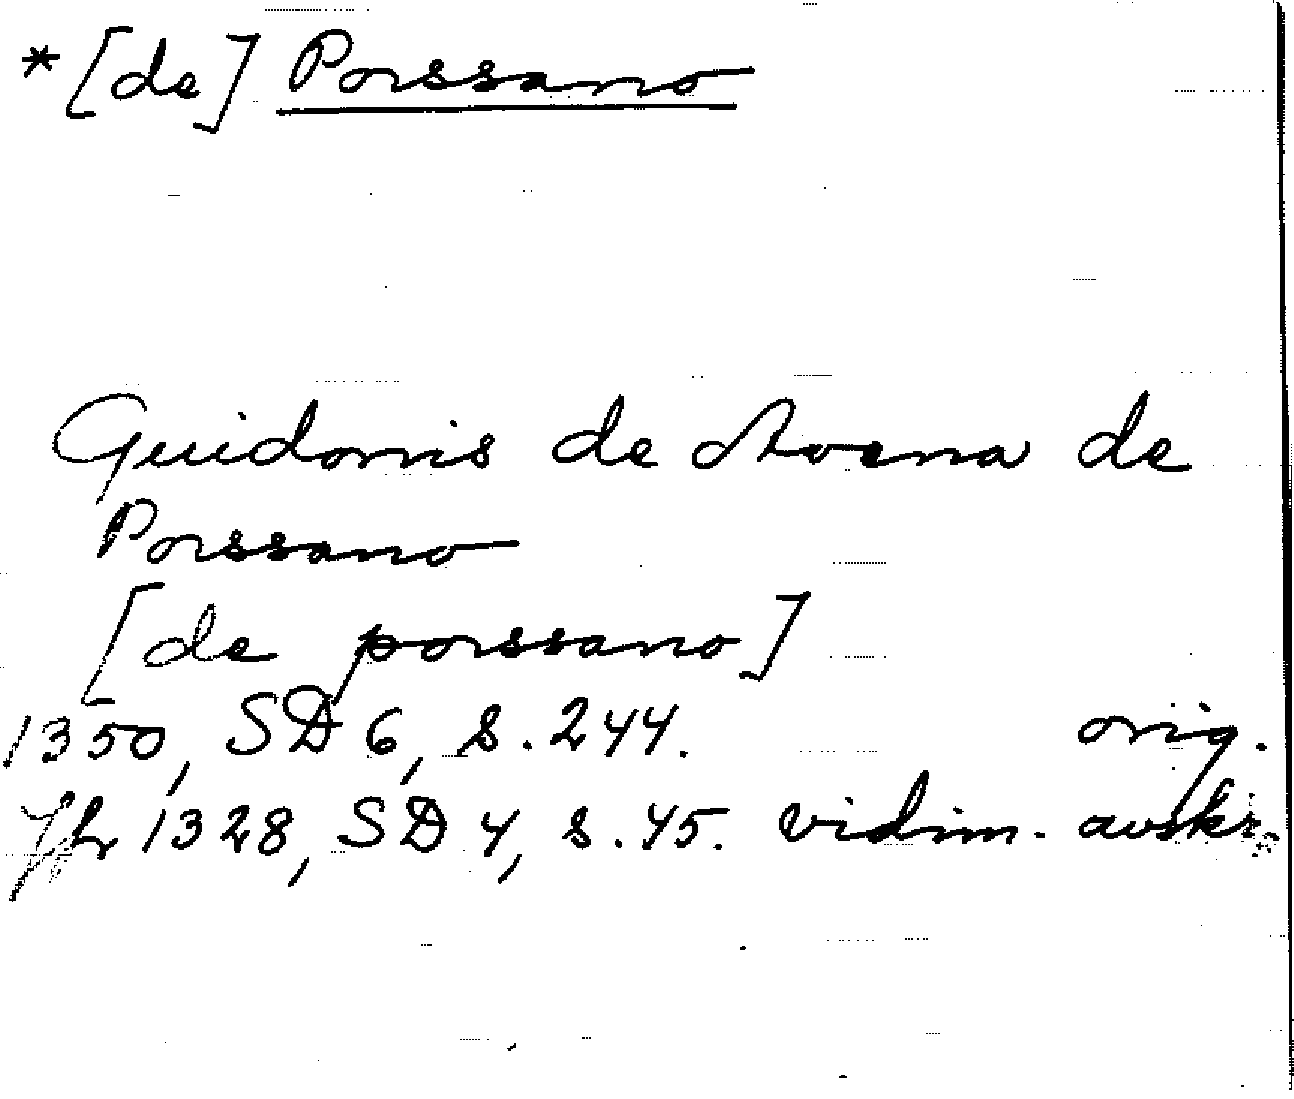 *[de] Porssano
Guidonis de de
Porssano
[de porssano]
1350, SD 6, s. 244. orig.
Jfr 1328, SD 4, s. 45. vidim. avskr.